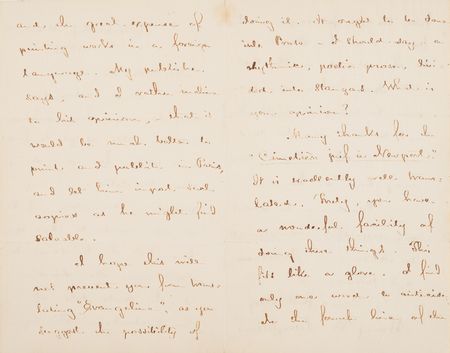 and the great expense of
printing works in a foreign
language. My publisher
says, and I rather incline
to his opinion, that it
would be much better to
print and publish in Paris,
and let him import such
copies as he might find
saleable.
I hope this will
not prevent you from trans-
lating "Evangeline", as you
suggest the possibility of
doing it. It ought to be done
into Prose – I should say, a
rhythmic, poetic prose, divi-
ded into Stanzas. What is
your opinion?
Many thanks for the
"Cimetière Juif à Newport."
It is excellently well trans-
lated. Truly, you have
a wonderful facility of
doing these things. This
fits like a glove. I find
only one word to criticise.
In the fourth line of the